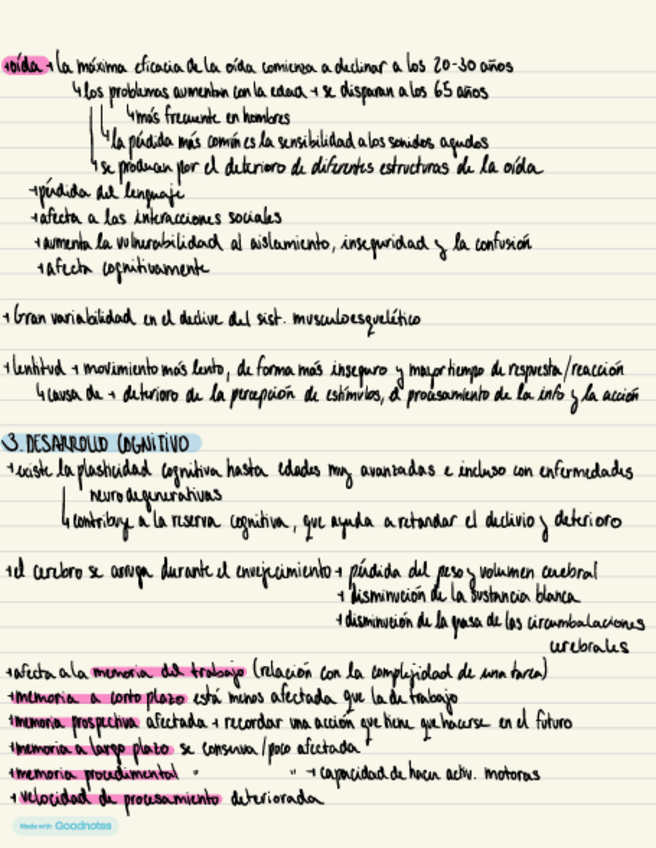 →oída→ la máxima eficacia de la oída comienza a declinar a los 20-30 años
↳ los problemas aumentan con la edad → se disparan a los 65 años
↳ más frecuente en hombres
↳ la pérdida más común es la sensibilidad a los sonidos agudos
↳ se producen por el deterioro de diferentes estructuras de la oída
→ pérdida del lenguaje
→ afecta a las interacciones sociales
→ aumenta la vulnerabilidad al aislamiento, inseguridad y la confusión
→ afecta cognitivamente
→ Gran variabilidad en el declive del sist. musculoesquelético
→ lentitud → movimiento más lento, de forma más inseguro y mayor tiempo de respuesta/reacción
↳ causa de → deterioro de la percepción de estímulos, el procesamiento de la info y la acción
3. DESARROLLO COGNITIVO
→ existe la plasticidad cognitiva hasta edades muy avanzadas e incluso con enfermedades
neurodegenerativas
↳ contribuye a la reserva cognitiva, que ayuda a retardar el declivio y deterioro
→ el cerebro se arruga durante el envejecimiento → pérdida del peso y volumen cerebral
→ disminución de la sustancia blanca
→ disminución de la grasa de las circumbalaciones
cerebrales
→ afecta a la memoria del trabajo (relación con la complejidad de una tarea)
→ memoria a corto plazo está menos afectada que la de trabajo
→ memoria prospectiva afectada → recordar una acción que tiene que hacerse en el futuro
→ memoria a largo plazo se conserva/poco afectada
→ memoria procedimental " " → capacidad de hacer activ. motoras
→ velocidad de procesamiento deteriorada
Made with Goodnotes